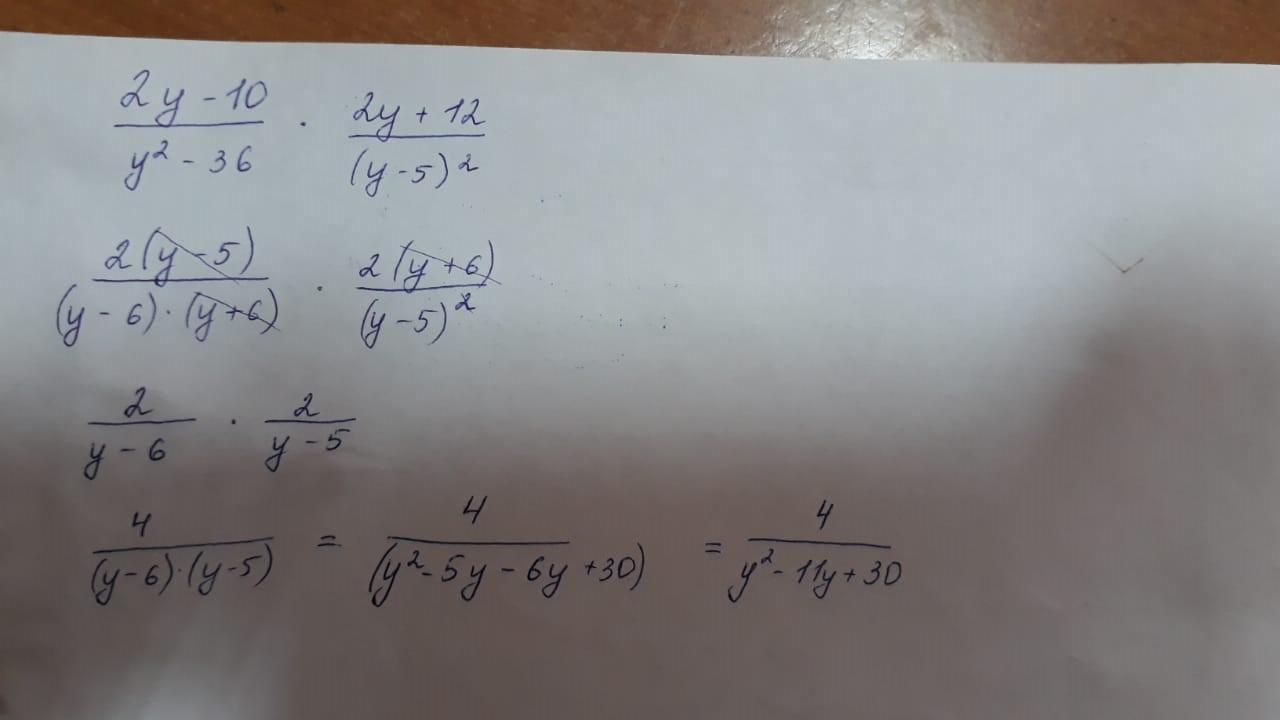 (2y - 10)/(y² - 36) · (2y + 12)/(y - 5)²
2(y - 5)/((y - 6) · (y + 6)) · 2(y + 6)/(y - 5)²
2/(y - 6) · 2/(y - 5)
4/((y - 6) · (y - 5)) = 4/(y² - 5y - 6y + 30) = 4/(y² - 11y + 30)